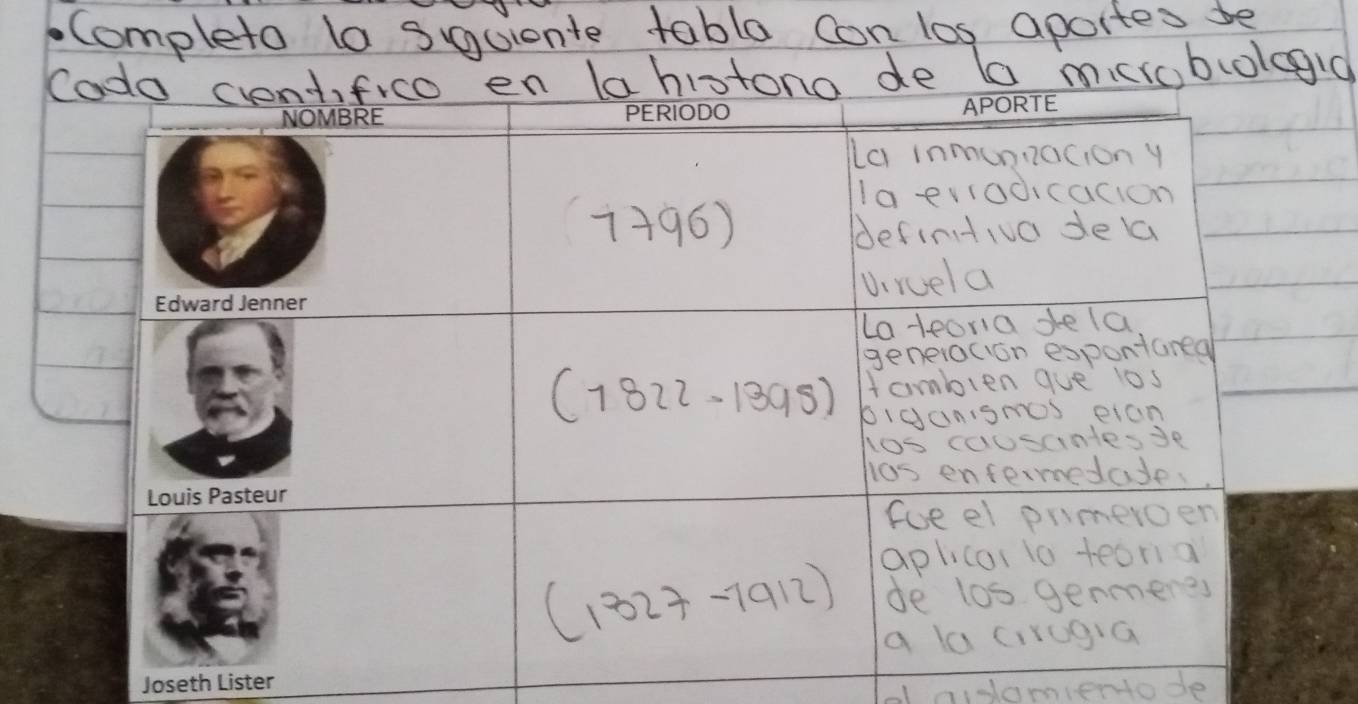 •Completa la siguiente tabla con los aportes de
Cada cientifico en la historia de la microbiologia
NOMBRE PERIODO APORTE
Edward Jenner
(1796)
La inmunizacion y
la erradicacion
definitiva de la
viruela
Louis Pasteur
(1822-1895)
La teoria de la
generacion espontanea
tambien que los
organismos eran
los causantes de
las enfermedades.
Joseth Lister
(1827-1912)
fue el primero en
aplicar la teoria
de los germenes
a la cirugia
el aislamiento de